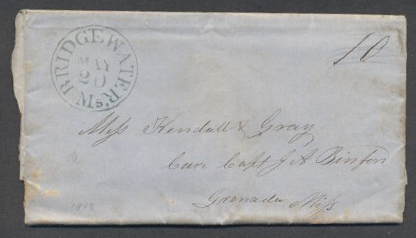 BRIDGEWATER Ms
MAY
20
10
Mess Kendall & Gray
Care Capt J A Binford
Grenada Miss
1848